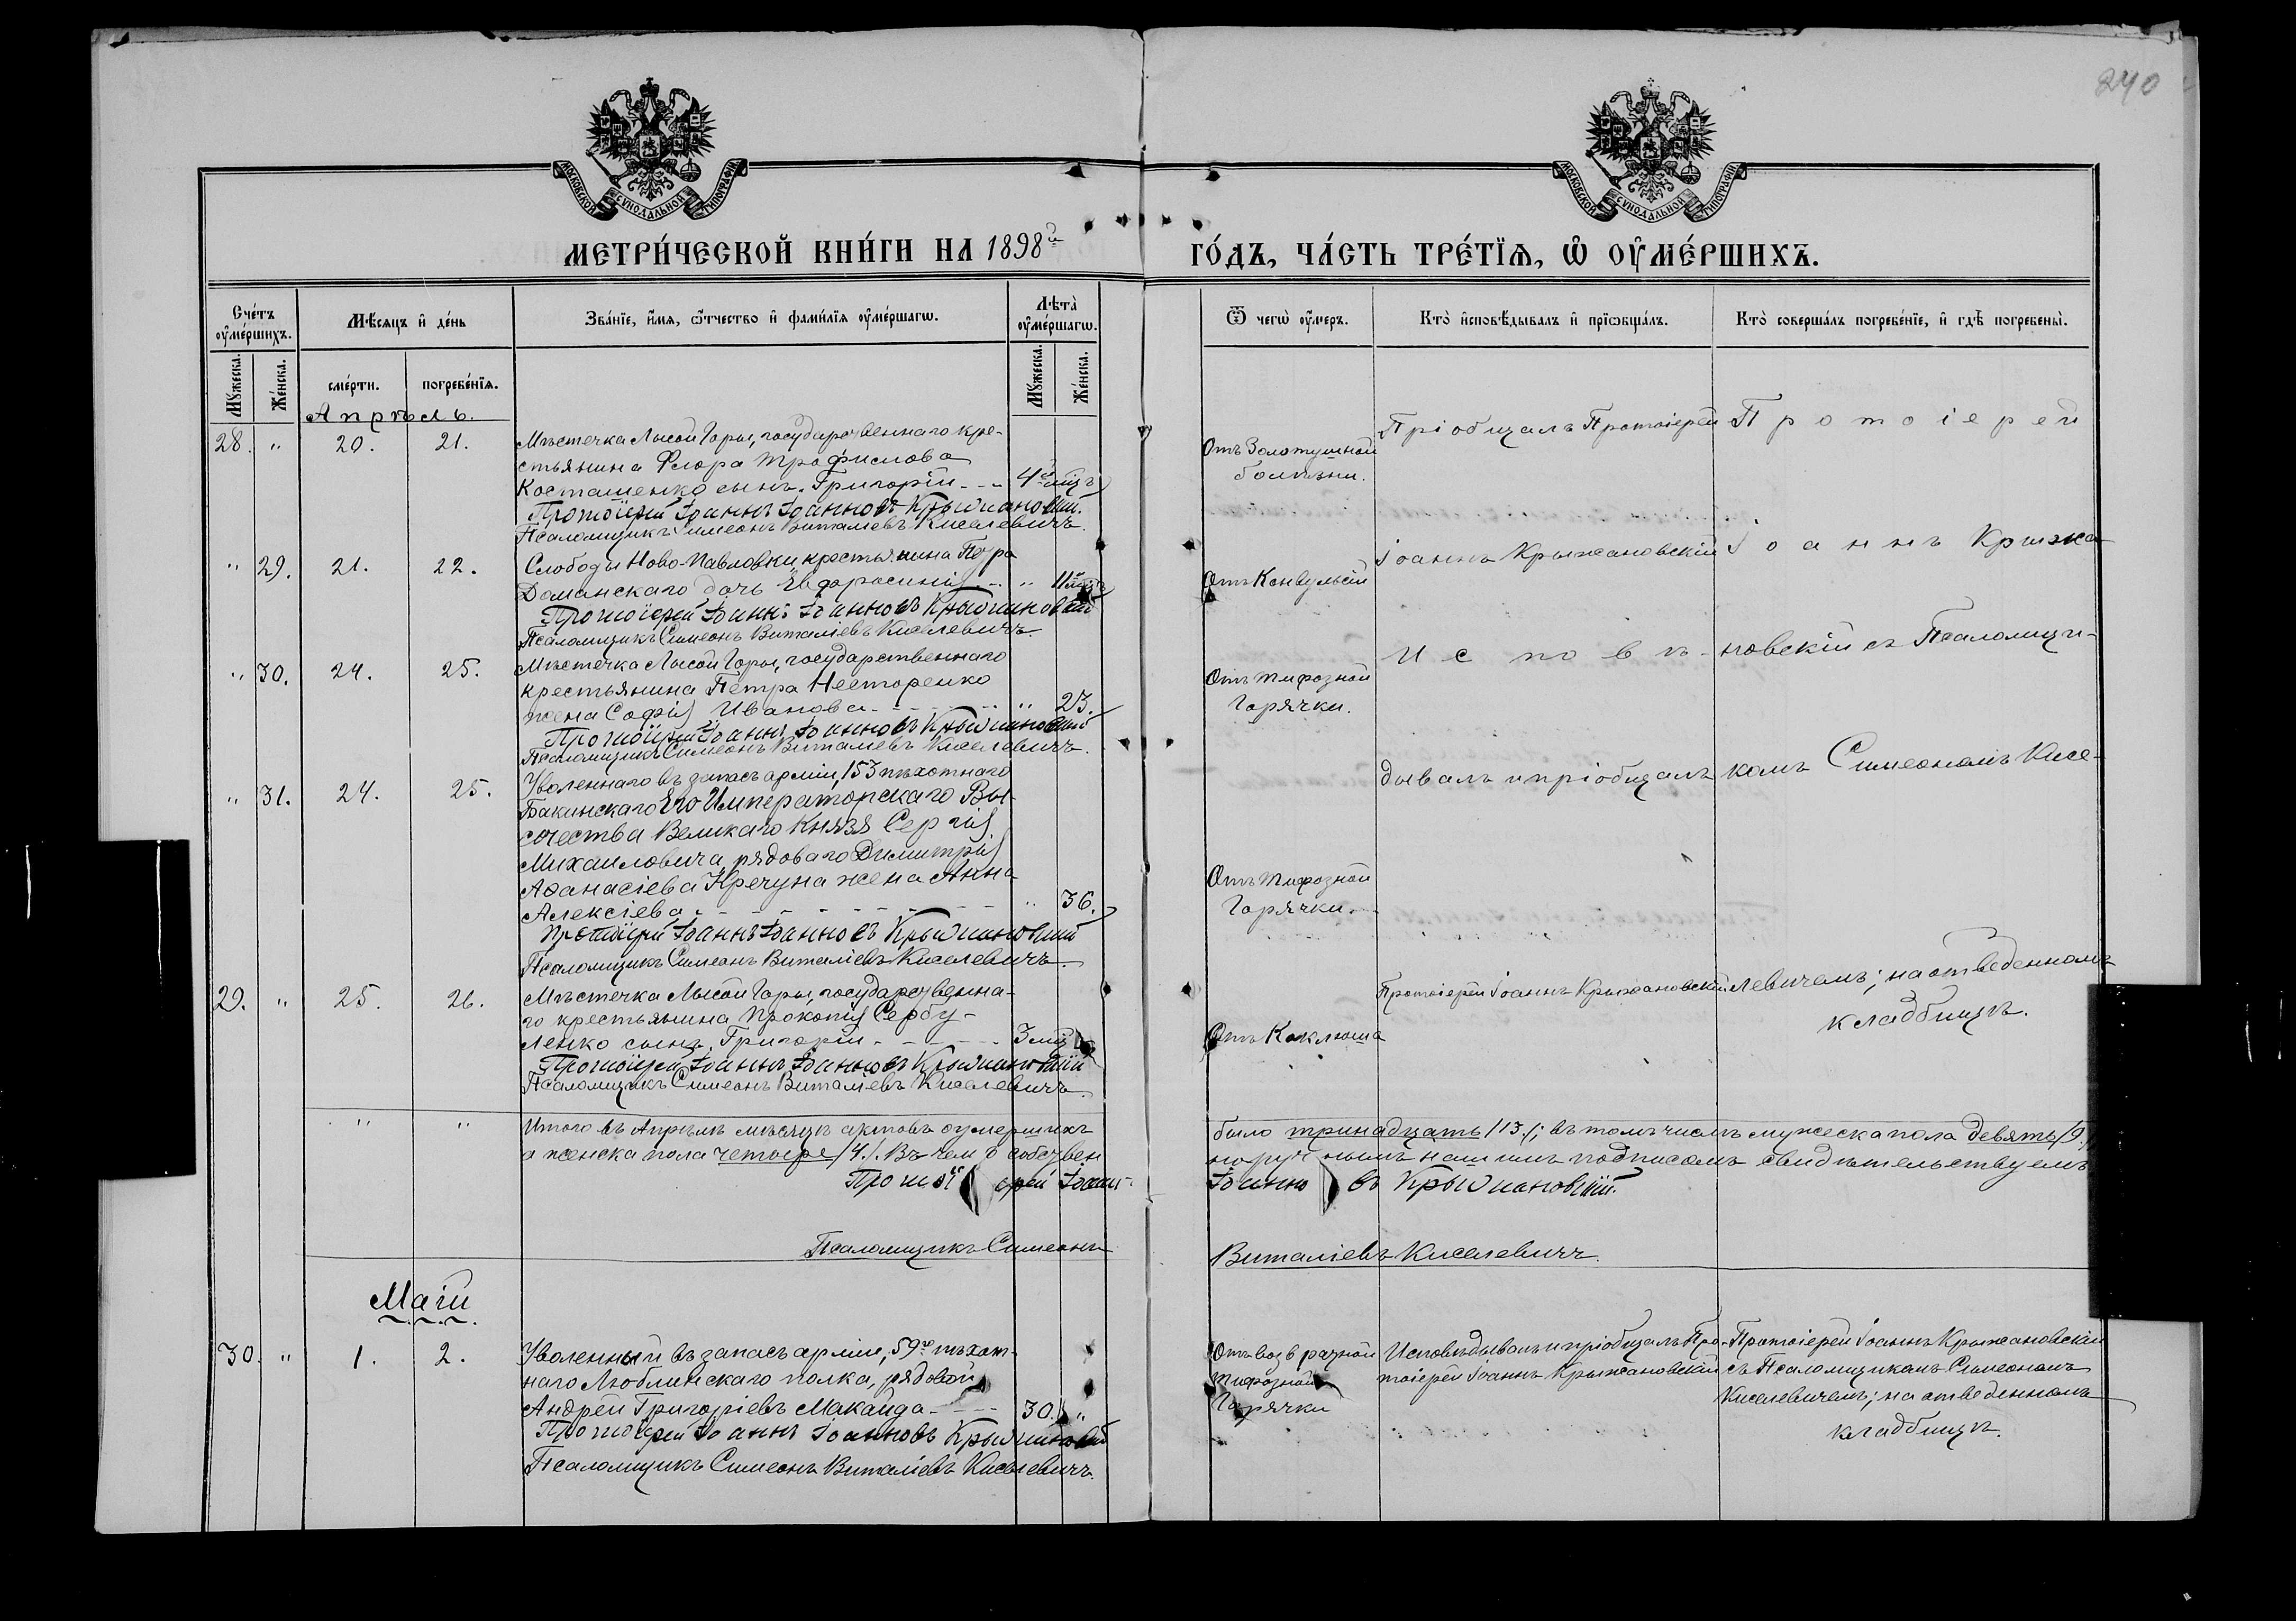 240
МОСКОВСКОЙ СУНОДАЛЬНОЙ ТИПОГРАФІИ
МОСКОВСКОЙ СУНОДАЛЬНОЙ ТИПОГРАФІИ
МЕТРИ́ЧЕСКОЙ КНИ́ГИ НА 1898й
ГО́ДЪ, ЧА́СТЬ ТРЕ́ТЇѦ, Ѡ ОУ҆МЕ́РШИХЪ.
Сче́тъ оу҆ме́ршихъ.
Мѣ́сяцъ и҆ де́нь
Зва́нїе, и҆́мя, ѻ҆́тчество и҆ фами́лїя оу҆ме́ршагѡ.
Лѣта̀ оу҆ме́ршагѡ.
Мꙋ́жеска.
Же́нска.
сме́рти.
погребе́нїѧ.
Мꙋ́жеска.
Же́нска.
Ѿ чегѡ̀ оу҆́меръ.
Кто̀ и҆сповѣ́дывалъ и҆ прїѡбща́лъ.
Кто̀ соверша́лъ погребе́нїе, и҆ гдѣ̀ погребены̀.
Апрѣль.
28. " 20. 21. Мѣстечка Лысой Горы, государственнаго кре-
стьянина Флора Трофимова
Косташенко сынъ Григорій - - - 4 мѣс.
Протоіерей Іоаннъ Іоанновъ Крыжановскій.
Псаломщикъ Симеонъ Виталіевъ Киселевичъ.
Отъ Золотушной
болѣзни.
Пріобщалъ Протоіерей
Протоіерей
" 29. 21. 22. Слободы Ново-Павловки крестьянина Петра
Доманскаго дочь Евфросинія - - " 11 мѣс.
Протоіерей Іоаннъ Іоанновъ Крыжановскій
Псаломщикъ Симеонъ Виталіевъ Киселевичъ.
Отъ Конвульсій
Іоаннъ Крыжановскій
Іоаннъ Крыжа-
" 30. 24. 25. Мѣстечка Лысой Горы, государственнаго
крестьянина Петра Несторенко
жена Софія Иванова - - - - " 23.
Протоіерей Іоаннъ Іоанновъ Крыжановскій
Псаломщикъ Симеонъ Виталіевъ Киселевичъ.
Отъ Тифозной
Горячки.
Исповѣ-
новскій съ Псаломщи-
" 31. 24. 25. Уволеннаго въ запасъ арміи, 153 пѣхотнаго
Бакинскаго Его Императорскаго Вы-
сочества Великаго Князя Сергія
Михаиловича, рядоваго Димитрія
Аѳанасіева Кречуна жена Анна
Алексіева - - - - - - - - " 36.
Протоіерей Іоаннъ Іоанновъ Крыжановскій
Псаломщикъ Симеонъ Виталіевъ Киселевичъ.
Отъ Тифозной
Горячки.
дывалъ и пріобщалъ
комъ Симеономъ Кисе-
29. " 25. 26. Мѣстечка Лысой Горы, государственна-
го крестьянина Прокопія Сербу-
ленко сынъ Григорій - - - - 3 мѣс.
Протоіерей Іоаннъ Іоанновъ Крыжановскій
Псаломщикъ Симеонъ Виталіевъ Киселевичъ.
Отъ Коклюша
Протоіерей Іоаннъ Крыжановскій
левичемъ; на отведенномъ
кладбищѣ.
" " Итого въ Апрѣлѣ мѣсяцѣ актовъ о умершихъ было тринадцать /13/; въ томъ числѣ мужеска пола девять /9/,
а женска пола четыре /4/. Въ чемъ собствен норучнымъ нашимъ подписомъ свидѣтельствуемъ
Протоіерей Іоаннъ Іоанновъ Крыжановскій.
Псаломщикъ Симеонъ Виталіевъ Киселевичъ.
Маій
30. " 1. 2. Уволенный въ запасъ арміи, 59го пѣхот-
наго Люблинскаго полка, рядовой
Андрей Григоріевъ Макайда - - - 30. "
Протоіерей Іоаннъ Іоанновъ Крыжановскій
Псаломщикъ Симеонъ Виталіевъ Киселевичъ.
Отъ возвратной
тифозной
Горячки
Исповѣдывалъ и пріобщалъ Про-
тоіерей Іоаннъ Крыжановскій
Протоіерей Іоаннъ Крыжановскій
съ Псаломщикомъ Симеономъ
Киселевичемъ; на отведенномъ
кладбищѣ.